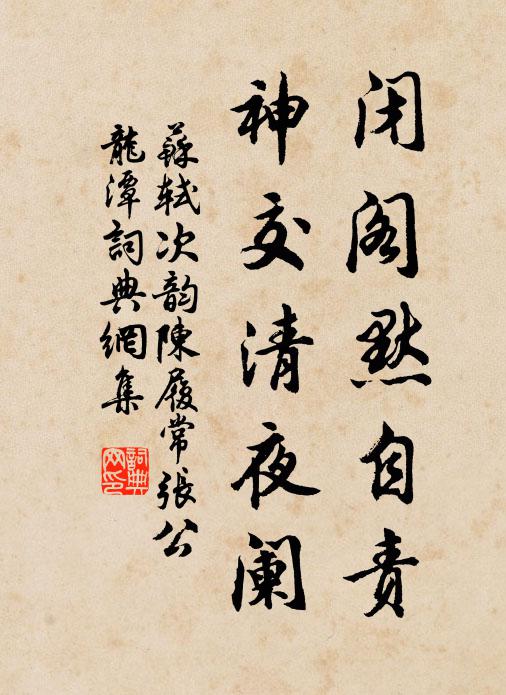 闭阁默自责
神交清夜阑
蘇軾次韵陳履常張公
龍潭詞典網集
詞典网印